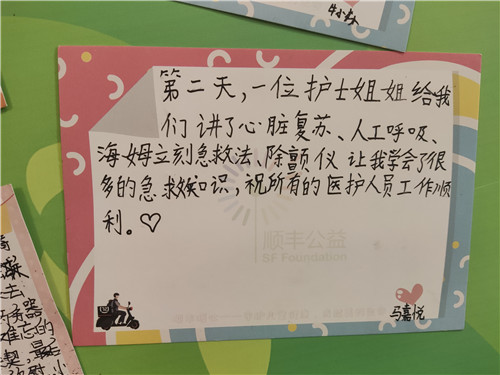 牛小林
第二天,一位护士姐姐给我
们讲了心脏复苏、人工呼吸、
海姆立刻急救法、除颤仪 让我学会了很
多的急救知识,祝所有的医护人员工作顺
利。♡
顺丰公益
SF Foundation
马嘉悦
去
难忘的
契,最